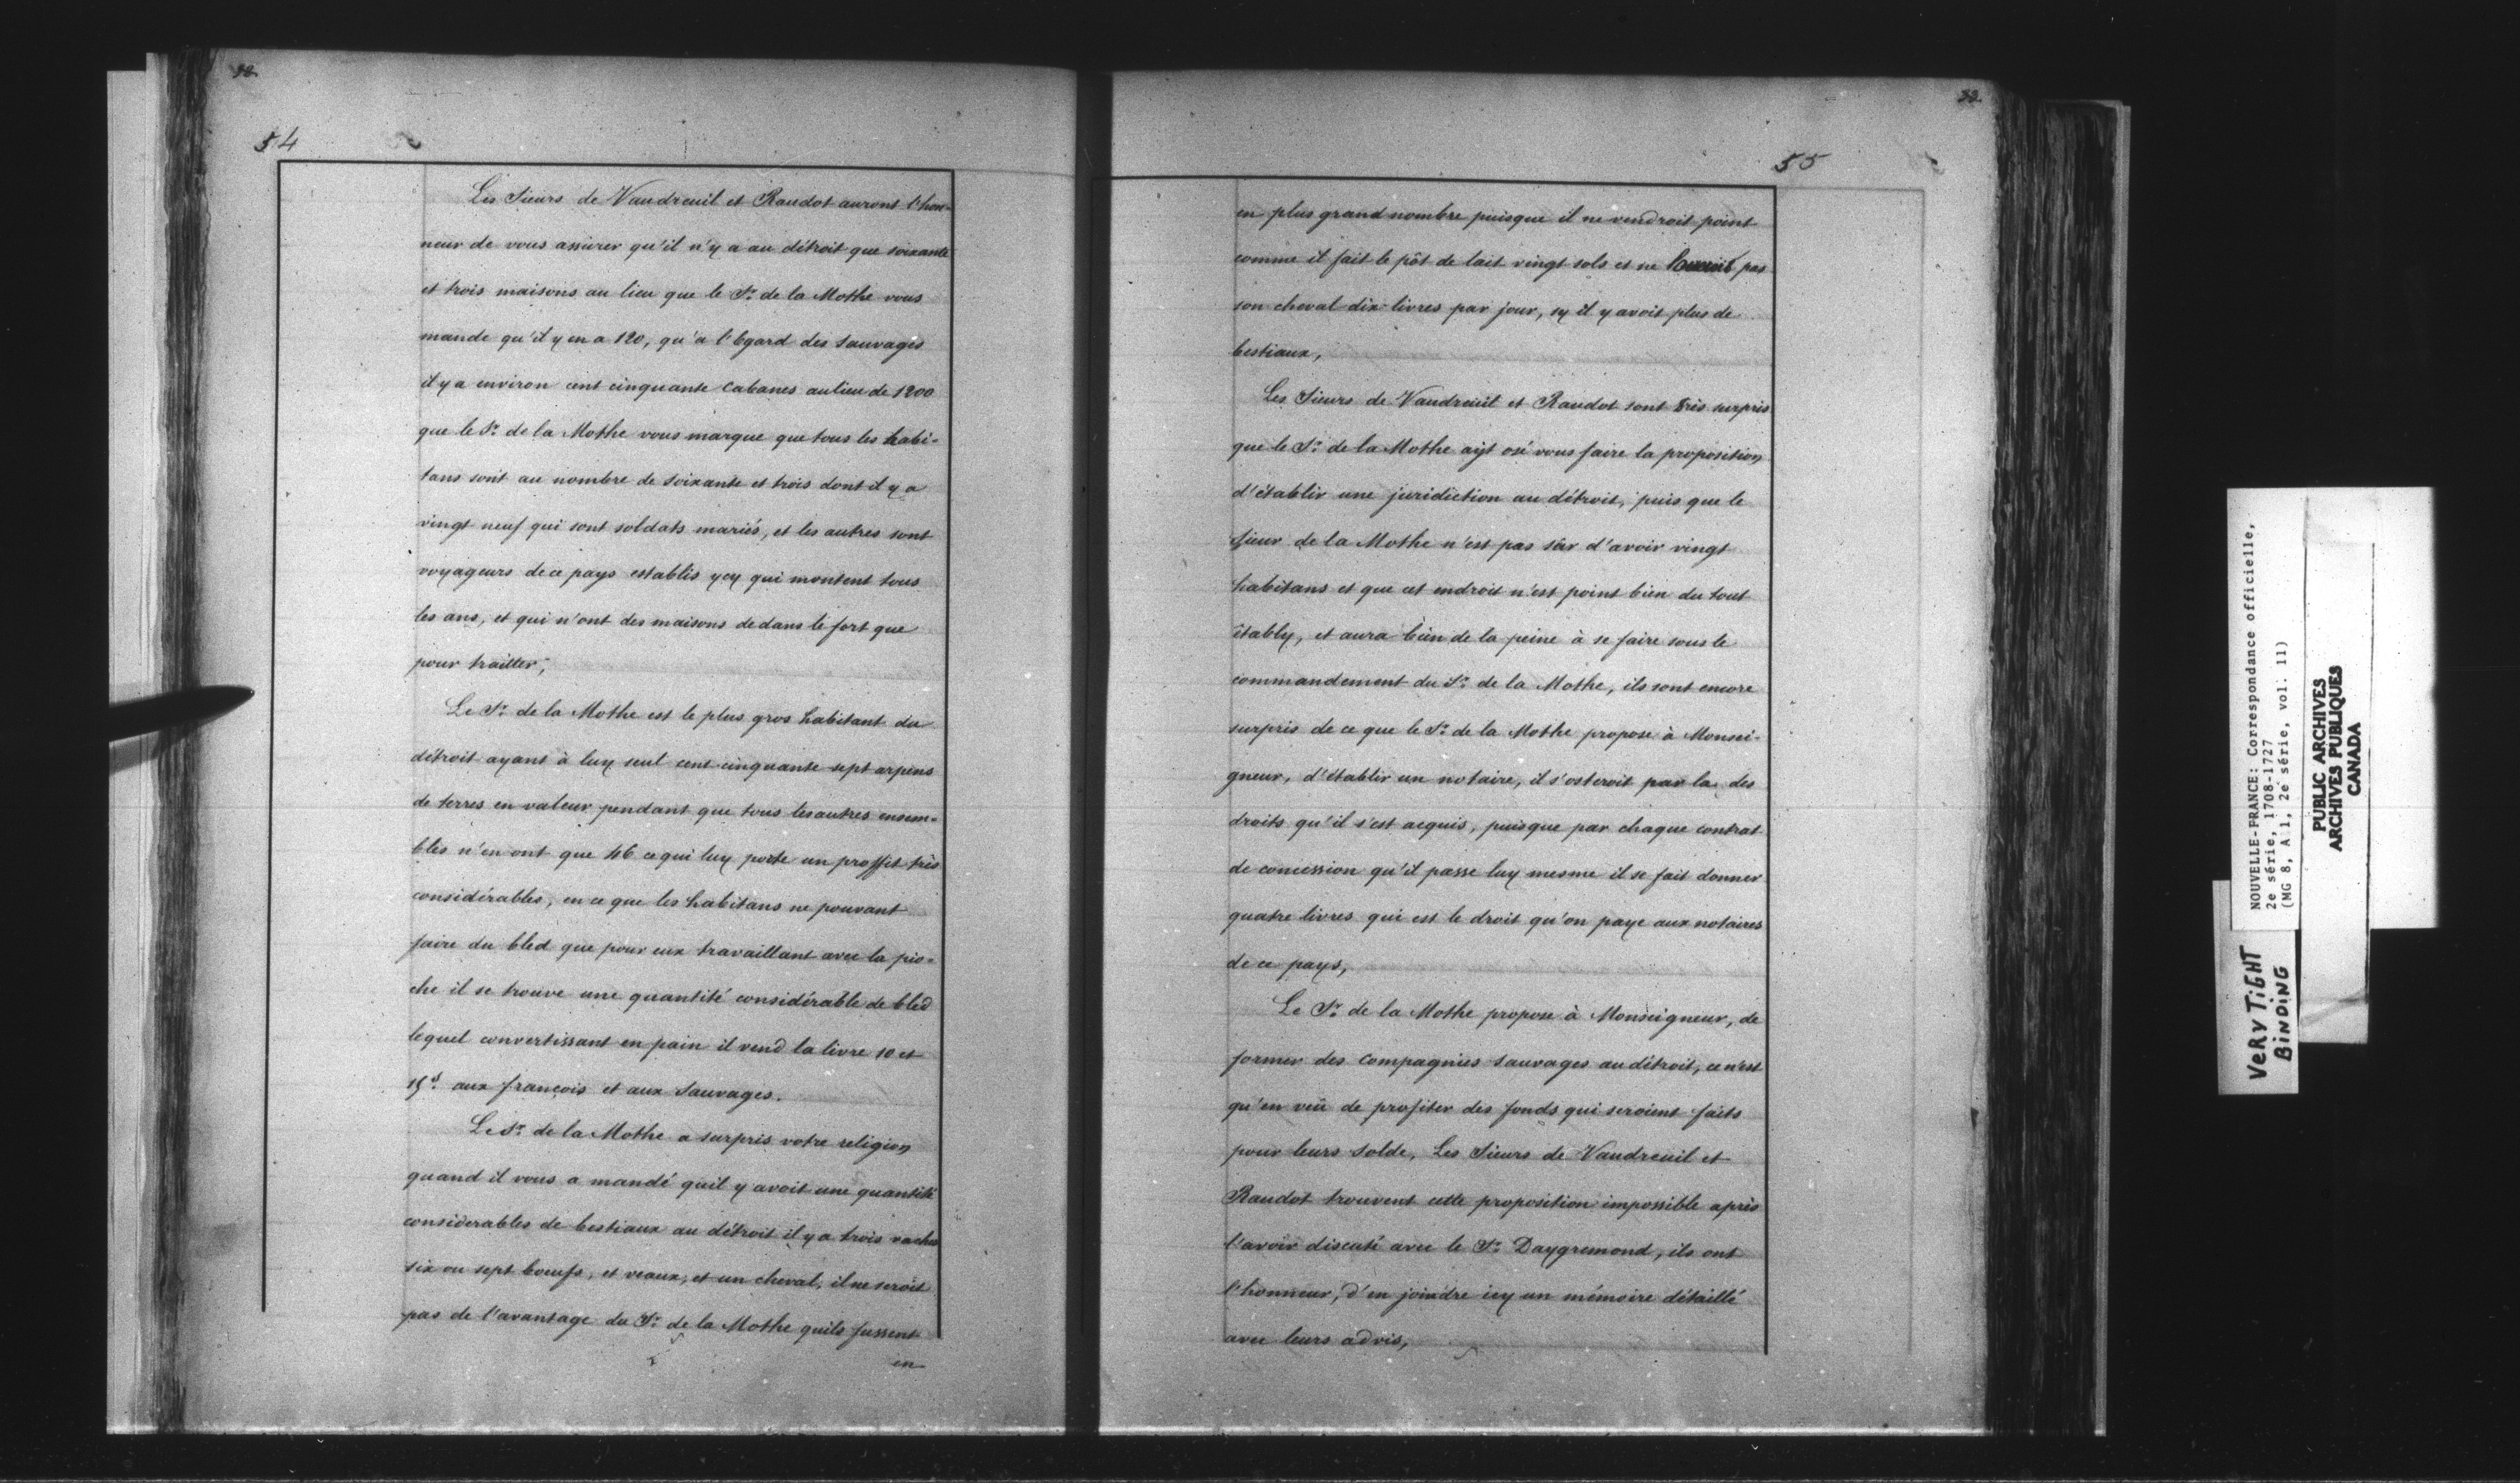 54
Les Sieurs de Vaudreuil et Raudot auront l'hon-
neur de vous assurer qu'il n'y a au détroit que soixante
et trois maisons au lieu que le Sr. de la Mothe vous
mande qu'il y en a 120, qu'a l'Egard des Sauvages
il y a environ cent cinquante Cabanes au lieu de 1200
que le Sr. de la Mothe vous marque que tous les habi-
tans sont au nombre de soixante et trois dont il y a
vingt neuf qui sont soldats mariés, et les autres sont
voyageurs de ce pays establis ycy qui montent tous
les ans, et qui n'ont des maisons dedans le fort que
pour traitter;
Le Sr. de la Mothe est le plus gros habitant du
détroit ayant à luy seul cent cinquante sept arpens
de terres en valeur pendant que tous les autres ensem-
bles n'en ont que 46 ce qui luy porte un proffit très
considérables, en ce que les habitans ne pouvant
faire du bled que pour eux travaillant avec la pio-
che il se trouve une quantité considérable de bled
lequel convertissant en pain il vend la livre 10 et
15s. aux françois et aux Sauvages.
Le Sr. de la Mothe a surpris votre religion
quand il vous a mandé quil y avoit une quantité
considerables de bestiaux au détroit il y a trois vaches
six ou sept bœufs, et veaux, et un cheval, il ne seroit
pas de l'avantage du Sr. de la Mothe quils fussent
en
55
en plus grand nombre puisque il ne vendroit point
comme il fait le pôt de lait vingt sols et ne pas
son cheval dix livres par jour, sy il y avoit plus de
bestiaux,
Les Sieurs de Vaudreuil et Raudot sont très surpris
que le Sr. de la Mothe ayt osé vous faire la proposition
d'établir une juridiction au détroit, puis que le
Sieur de la Mothe n'est pas sûr d'avoir vingt
habitans et que cet endroit n'est point bien du tout
étably, et aura bien de la peine à se faire sous le
commandement du Sr. de la Mothe, ils sont encore
surpris de ce que le Sr. de la Mothe propose à Monsei-
gneur, d'établir un notaire, il s'osteroit par la des
droits qu'il s'est acquis, puisque par chaque contrat
de concession qu'il passe luy mesme il se fait donner
quatre livres qui est le droit qu'on paye aux notaires
de ce pays,
Le Sr. de la Mothe propose à Monseigneur, de
former des Compagnies Sauvages au détroit, ce n'est
qu'en veü de profiter des fonds qui seroient faits
pour leurs solde, Les Sieurs de Vaudreuil et
Raudot trouvent cette proposition impossible après
l'avoir discuté avec le Sr. Daygremond, ils ont
l'honneur, d'en joindre icy un mémoire détaillé
avec leurs advis,
NOUVELLE-FRANCE: Correspondance officielle,
2e série, 1708-1727
(MG 8, A 1, 2e série, vol. 11)
PUBLIC ARCHIVES
ARCHIVES PUBLIQUES
CANADA
VERY TIGHT
BINDING